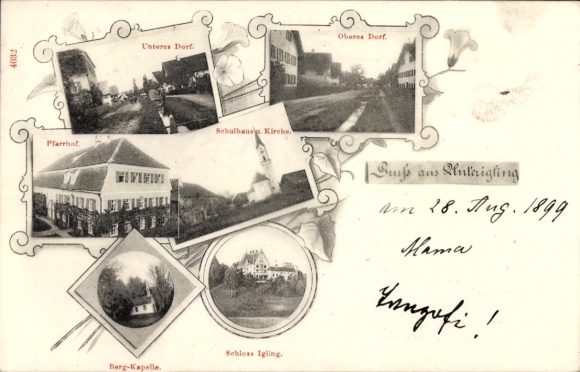 4032
Unteres Dorf.
Oberes Dorf.
Pfarrhof.
Schulhaus u. Kirche.
Gruß aus Unterigling
am 28. Aug. 1899
Mama
Berg-Kapelle.
Schloss Igling.